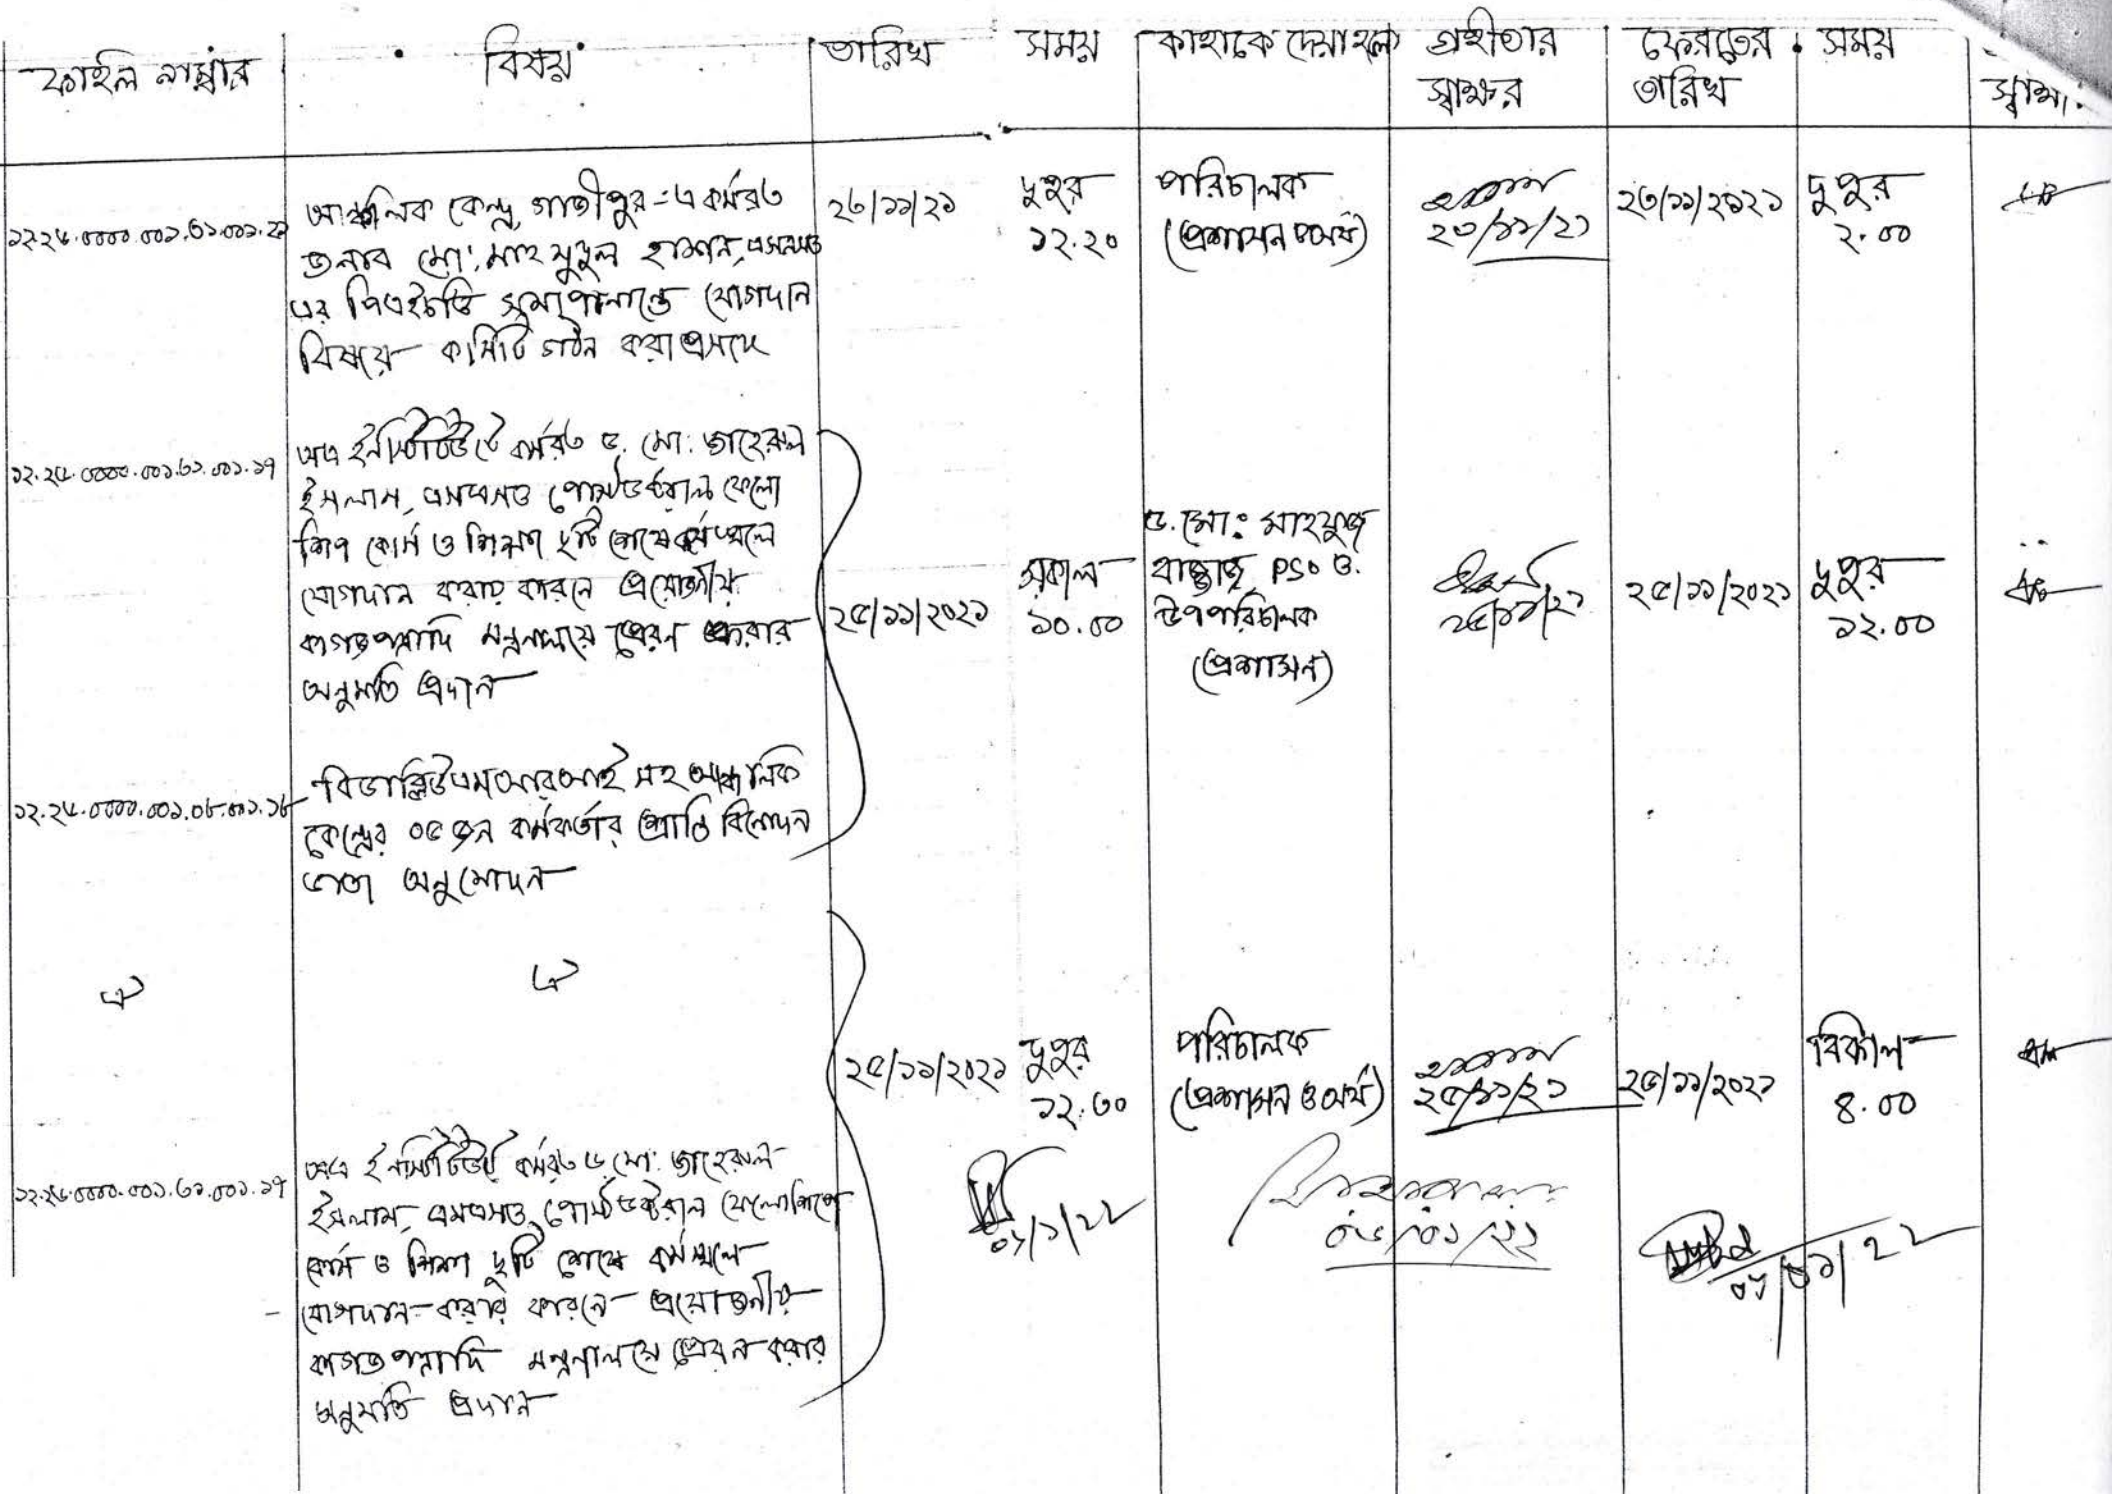 ফাইল নাম্বার
বিষয়
তারিখ
সময়
কাহাকে দেয়া হলো
গ্রহীতার
স্বাক্ষর
ফেরতের
তারিখ
সময়
আঞ্চলিক কেন্দ্র, গাজীপুর-এ কর্মরত
জনাব মো: মাহমুদুল হাসান, এসএসও
এর পিএইচডি সমাপনান্তে যোগদান
বিষয়ে কমিটি গঠন করা প্রসঙ্গে
২৩/১১/২১
দুপুর
১২.২০
পরিচালক
(প্রশাসন ও অর্থ)
২৩/১১/২১
২৩/১১/২০২১
দুপুর
২.০০
১২.২৪.০০০০.০০১.৩১.০০১.১৭
অত্র ইনস্টিটিউটে কর্মরত ড. মো: জাহেরুল
ইসলাম, এসএসও পোস্ট ডক্টরাল ফেলো
শিপ কোর্স ও শিক্ষা ছুটি শেষে কর্মস্থলে
যোগদান করার কারনে প্রয়োজনীয়
কাগজপত্রাদি মন্ত্রনালয়ে প্রেরন করার
অনুমতি প্রদান
২৫/১১/২০২১
সকাল
১০.০০
ড. মো: মাহফুজ
বাজ্জাজ, PSO ও
উপপরিচালক
(প্রশাসন)
২৫/১১/২১
২৫/১১/২০২১
দুপুর
১২.০০
বিডাব্লিউএমআরআই সহ আঞ্চলিক
কেন্দ্রের ০৫ জন কর্মকর্তার শ্রান্তি বিনোদন
ভাতা অনুমোদন
ঐ
ঐ
২৫/১১/২০২১
দুপুর
১২.৩০
পরিচালক
(প্রশাসন ও অর্থ)
২৫/১১/২১
২৫/১১/২০২১
বিকাল
৪.০০
১২.২৪.০০০০.০০১.৩১.০০১.১৭
অত্র ইনস্টিটিউটে কর্মরত ড. মো: জাহেরুল
ইসলাম, এসএসও, পোস্ট ডক্টরাল ফেলোশিপ
কোর্স ও শিক্ষা ছুটি শেষে কর্মস্থলে
যোগদান করার কারনে প্রয়োজনীয়
কাগজপত্রাদি মন্ত্রনালয়ে প্রেরন করার
অনুমতি প্রদান